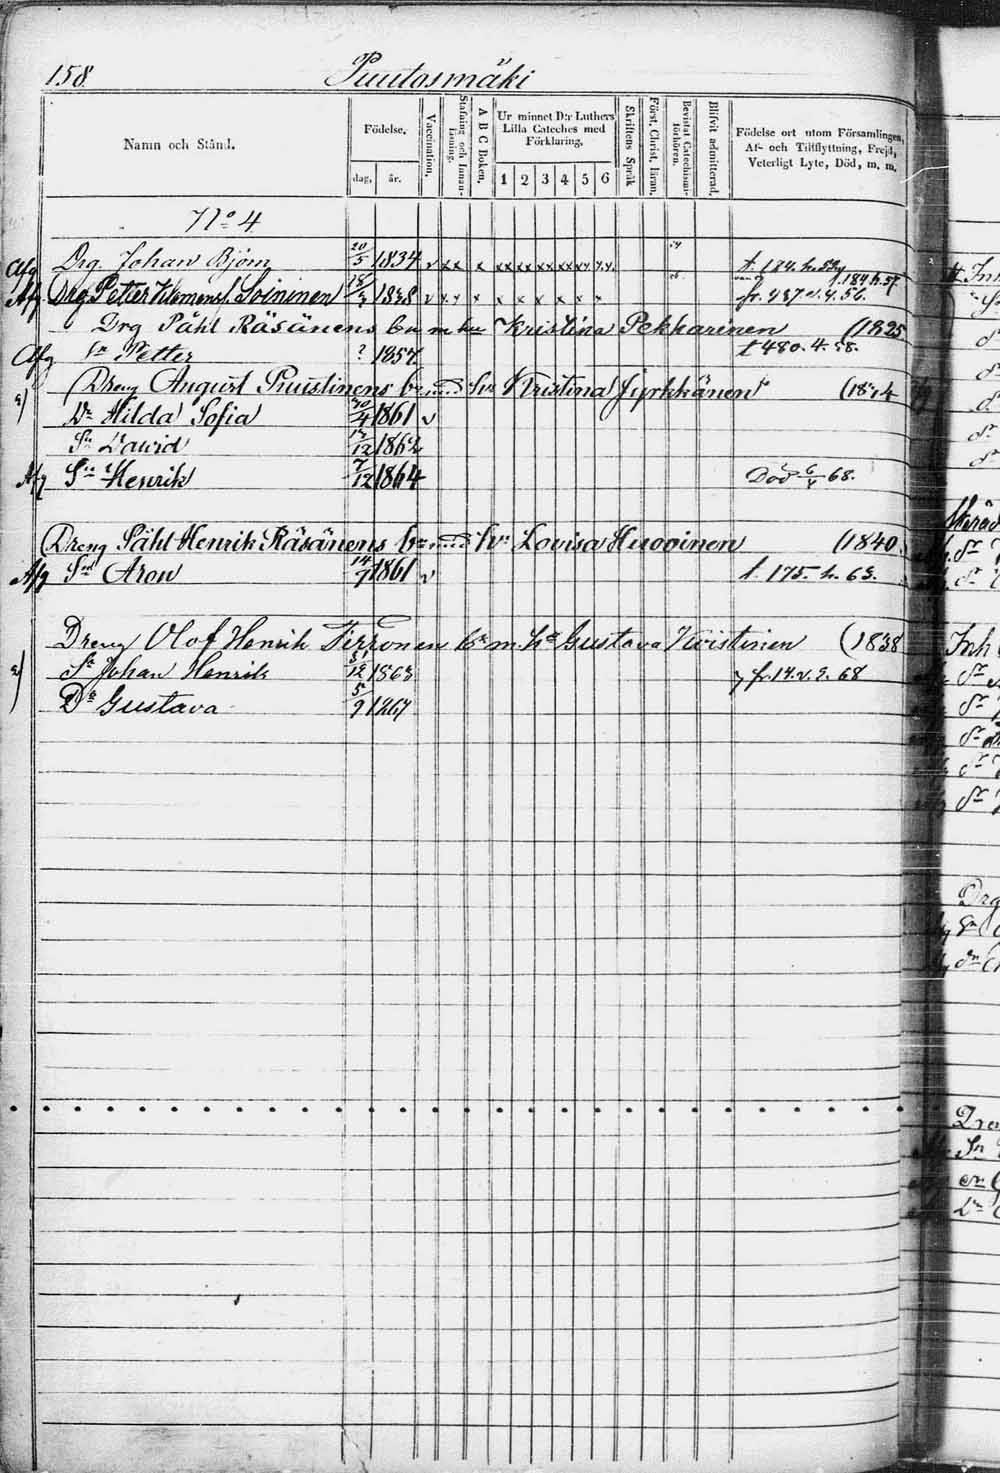 158
Puutosmäki
Namn och Stånd.
Födelse,
dag,
år.
Vaccination,
Stafning och Innan-läsning.
A B C Boken,
Ur minnet D:r Luthers Lilla Cateches med Förklaring,
1 2 3 4 5 6
Skriftens Språk
Först. Christ. läran,
Bevistat Catechismi-förhören.
Blifvit admitterad.
Födelse ort utom Församlingen,
Af- och Tillflyttning, Frejd,
Veterligt Lyte, Död, m. m.
No 4
Afg Drg. Johan Björn 20/5 1834 v x x x xx xx xx xx xx x.x. t. 184. h.
Afg Drg Petter Klemenss. Soininen 1838 v x x x x x x x x x t. 184 h 57.
fr. 437 v. 4. 56.
Drg Påhl Räsänens b m hu Kristina Pekkarinen (1825
Afg Sn Petter ? 1857 t 480. 4. 58.
Dreng August Puustinens b hu Kristina Jyrkkänen
Dr Hilda Sofia 30/4 1861 v
Sn Dawid /12 1862
Afg Sn Henrik 7/12 1864 Död 68.
Dreng Påhl Henrik Räsänens b hu Lovisa Huovinen (1840.
Afg Sn Aron 14/7 1861 v t. 175. h. 63.
Dreng Olof Henrik Tirronen b m. h Gustava Koistinen (1838
Sn Johan Henrik 31/12 1863 fr. 14. v. 9. 68
Dr Gustava 5/9 1867
Inh
Drg